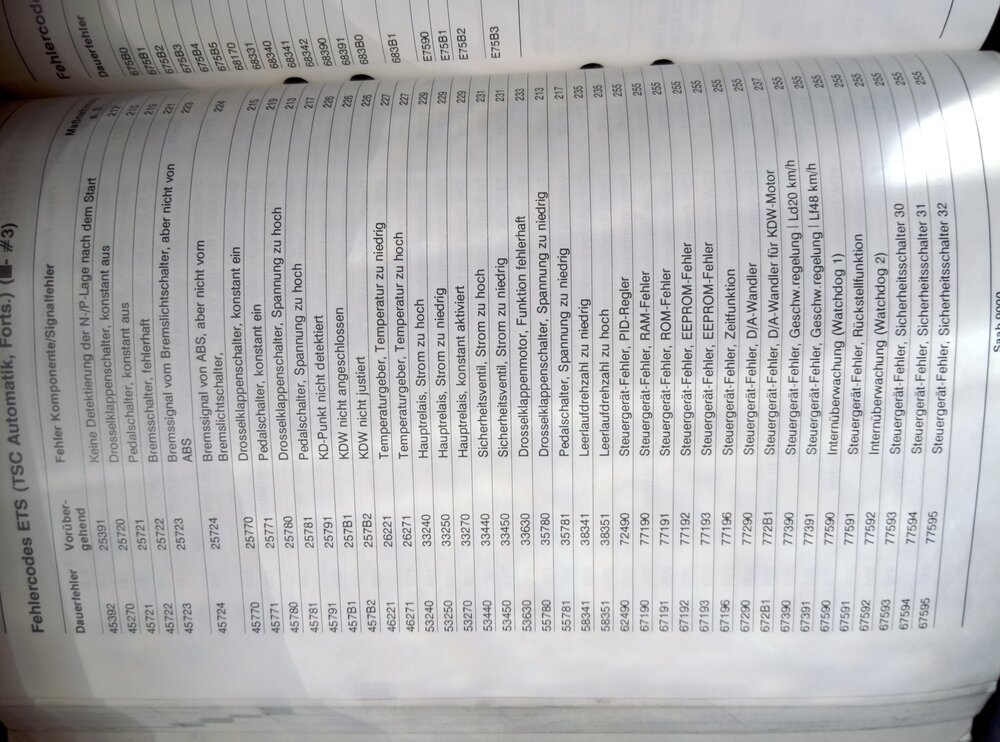 Fehlercodes ETS (TSC Automatik, Forts.) (■- #3)
Dauerfehler Vorüber- gehend Fehler Komponente/Signalfehler s. S.
45392 25391 Keine Detektierung der N-/P-Lage nach dem Start 212
45270 25720 Drosselklappenschalter, konstant aus 215
45721 25721 Pedalschalter, konstant aus 219
45722 25722 Bremsschalter, fehlerhaft 221
45723 25723 Bremssignal vom Bremslichtschalter, aber nicht von 223
ABS
45724 25724 Bremssignal von ABS, aber nicht vom 224
Bremslichtschalter,
45770 25770 Drosselklappenschalter, konstant ein 215
45771 25771 Pedalschalter, konstant ein 219
45780 25780 Drosselklappenschalter, Spannung zu hoch 213
45781 25781 Pedalschalter, Spannung zu hoch 217
45791 25791 KD-Punkt nicht detektiert 226
457B1 257B1 KDW nicht angeschlossen 226
457B2 257B2 KDW nicht justiert 226
46221 26221 Temperaturgeber, Temperatur zu niedrig 227
46271 26271 Temperaturgeber, Temperatur zu hoch 227
53240 33240 Hauptrelais, Strom zu hoch 229
53250 33250 Hauptrelais, Strom zu niedrig 229
53270 33270 Hauptrelais, konstant aktiviert 229
53440 33440 Sicherheitsventil, Strom zu hoch 231
53450 33450 Sicherheitsventil, Strom zu niedrig 231
53630 33630 Drosselklappenmotor, Funktion fehlerhaft 233
55780 35780 Drosselklappenschalter, Spannung zu niedrig 213
55781 35781 Pedalschalter, Spannung zu niedrig 217
58341 38341 Leerlaufdrehzahl zu niedrig 235
58351 38351 Leerlaufdrehzahl zu hoch 235
62490 72490 Steuergerät-Fehler, PID-Regler 255
67190 77190 Steuergerät-Fehler, RAM-Fehler 255
67191 77191 Steuergerät-Fehler, ROM-Fehler 255
67192 77192 Steuergerät-Fehler, EEPROM-Fehler 255
67193 77193 Steuergerät-Fehler, EEPROM-Fehler 255
67196 77196 Steuergerät-Fehler, Zeitfunktion 255
67290 77290 Steuergerät-Fehler, D/A-Wandler 255
672B1 772B1 Steuergerät-Fehler, D/A-Wandler für KDW-Motor 237
67390 77390 Steuergerät-Fehler, Geschw.regelung | Ld20 km/h 255
67391 77391 Steuergerät-Fehler, Geschw.regelung | Lf48 km/h 255
67590 77590 Internüberwachung (Watchdog 1) 255
67591 77591 Steuergerät-Fehler, Rückstellfunktion 255
67592 77592 Internüberwachung (Watchdog 2) 255
67593 77593 Steuergerät-Fehler, Sicherheitsschalter 30 255
67594 77594 Steuergerät-Fehler, Sicherheitsschalter 31 255
67595 77595 Steuergerät-Fehler, Sicherheitsschalter 32 255
Saab 900
Fehlercode
Dauerfehler
675B0
675B1
675B2
675B3
675B4
675B5
68170
68331
68340
68341
68342
68390
68391
683B0
683B1
E7590
E75B1
E75B2
E75B3